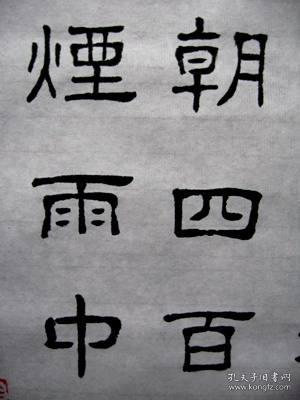 朝四百
煙雨中
孔夫子旧书网